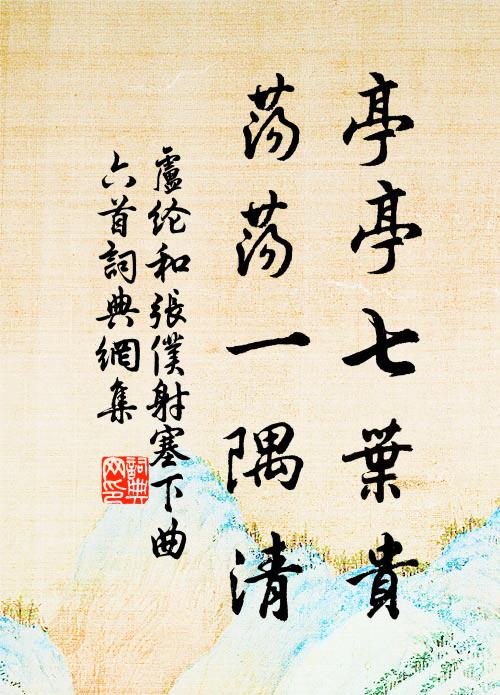 亭亭七葉貴
蕩蕩一隅清
盧纶和張僕射塞下曲
六首詞典網集
詞典网印